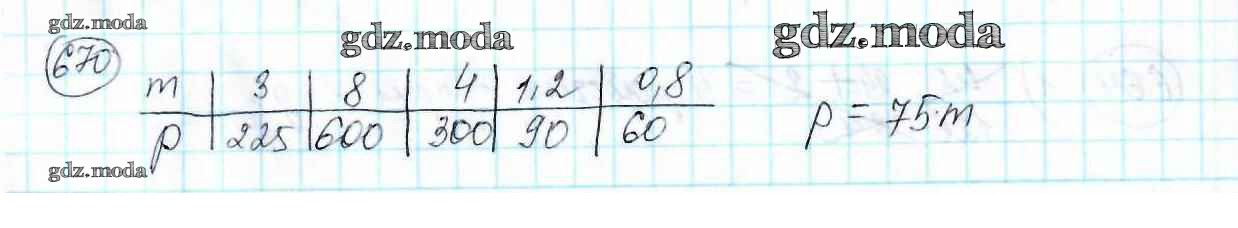 gdz.moda
gdz.moda
gdz.moda
670
m 3 8 4 1,2 0,8
p 225 600 300 90 60
p = 75·m
gdz.moda